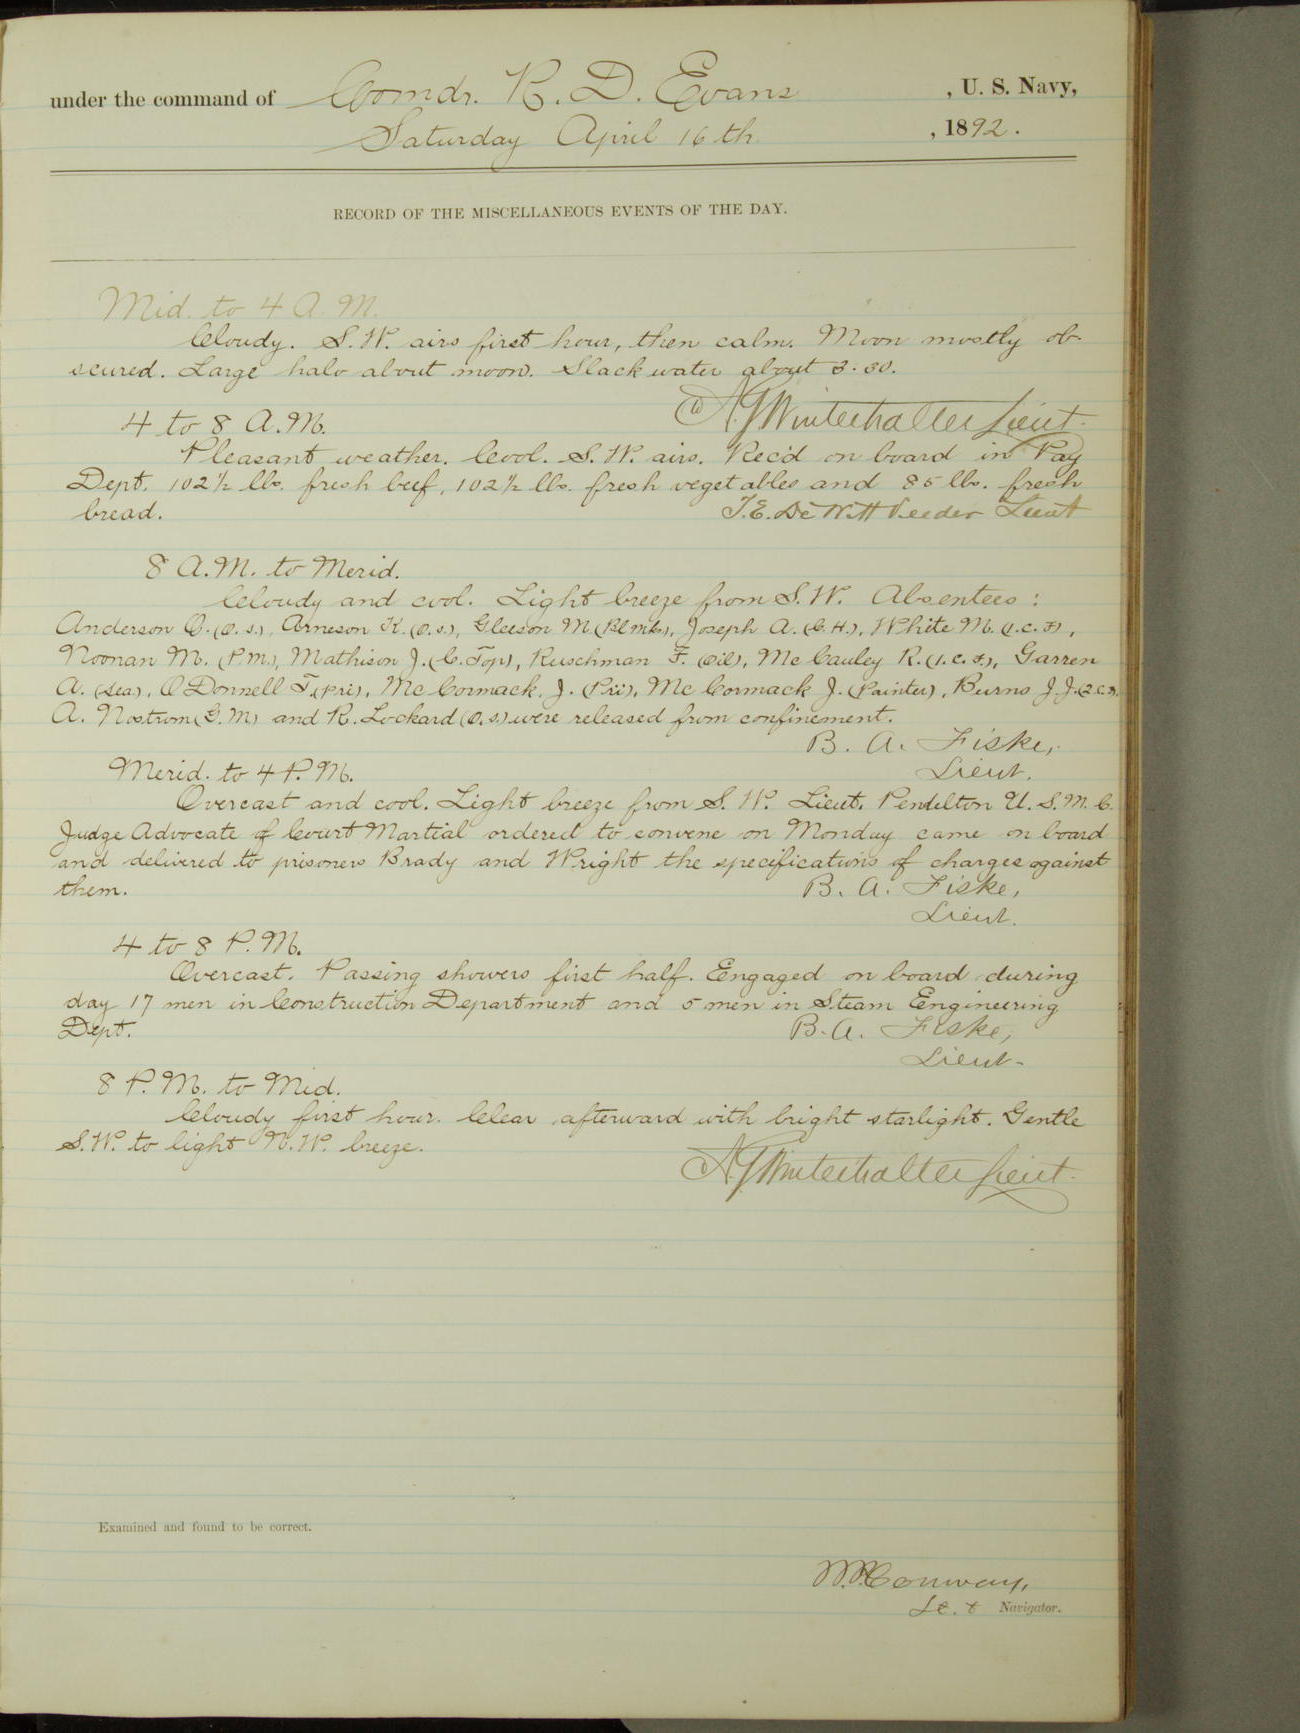 under the command of Comdr. R. D. Evans, U. S. Navy,
Saturday April 16th, 1892.
RECORD OF THE MISCELLANEOUS EVENTS OF THE DAY.
Mid. to 4 A.M.
Cloudy. S.W. airs first hour, then calm. Moon mostly ob-
scured. Large halo about moon. Slack water about 3.30.
A.G. Winterhalter Lieut.
4 to 8 A.M.
Pleasant weather. Cool. S.W. airs. Rec'd on board in Pay
Dept. 102½ lbs. fresh beef, 102½ lbs. fresh vegetables and 85 lbs. fresh
bread.
T.E. DeWitt Veeder Lieut
8 A.M. to Merid.
Cloudy and cool. Light breeze from S.W. Absentees:
Anderson O. (O.S.), Arneson K. (O.S.), Gleeson M. (Blmkr), Joseph A. (C.H.), White M. (1.C.F),
Noonan M. (P.M.), Mathison J. (C.Top), Ruschman F. (Oil), McCauley R. (1.C.F.), Garren
A. (Sea), O'Donnell T. (Pri), McCormack, J. (Pri), McCormack J. (Painter), Burns J.J. (2.C.F).
A. Nostrom (G.M) and R. Lockard (O.S.) were released from confinement.
B. A. Fiske,
Lieut.
Merid. to 4 P.M.
Overcast and cool. Light breeze from S.W. Lieut. Pendelton U.S.M.C.
Judge Advocate of Court Martial ordered to convene on Monday came on board
and delivered to prisoners Brady and Wright the specifications of charges against
them.
B. A. Fiske,
Lieut.
4 to 8 P.M.
Overcast. Passing showers first half. Engaged on board during
day 17 men in Construction Department and 5 men in Steam Engineering
Dept.
B. A. Fiske,
Lieut.
8 P.M. to Mid.
Cloudy first hour. Clear afterward with bright starlight. Gentle
S.W. to light N.W. breeze.
A.G. Winterhalter Lieut.
Examined and found to be correct.
W.P. Conway,
Lt. & Navigator.